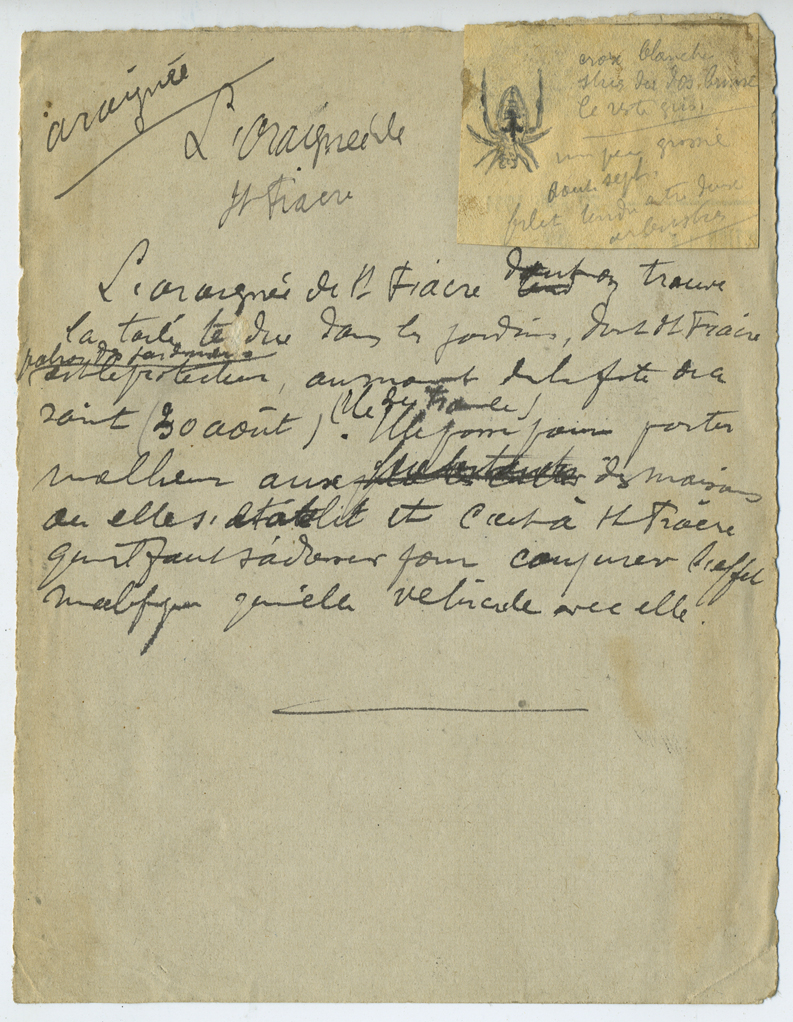 araignée
L'Araignée de
St Fiacre
croix blanche
le reste gris
un peu grossie
août sept.
filet tendu entre deux
arbustes
L'araignée de St Fiacre dont on trouve
la toile te due dans les jardins, dont St Fiacre
patron des jardiniers
est le protecteur, au moment de la fête de ce
saint (30 août) (Ile de France). Elle passe pour porter
malheur aux habitants des maisons
où elle s'établit et c'est à St Fiacre
qu'il faut s'adresser pour conjurer l'effet
maléfique qu'elle véhicule avec elle.